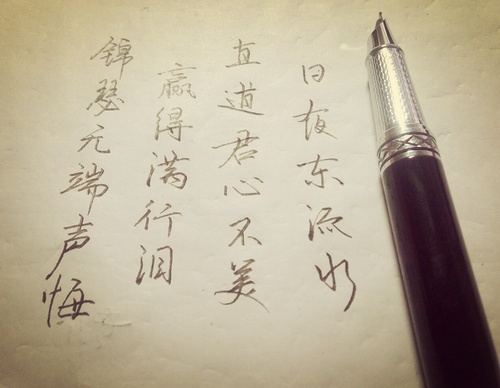 日夜东流水
直道君心不美
赢得满行泪
锦瑟无端声悔